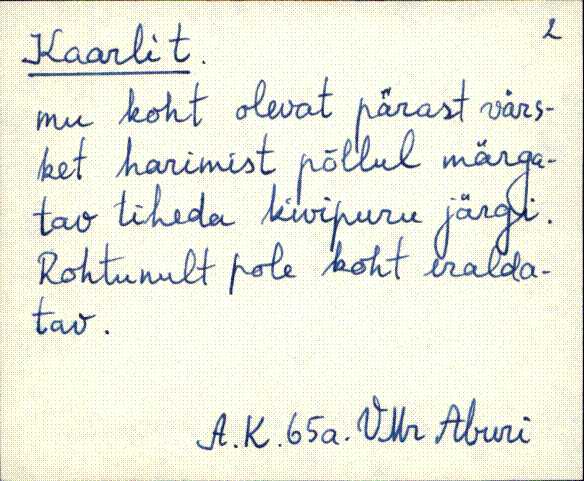 2
Kaarli t.
mu koht olevat pärast värs-
ket harimist põllul märga-
tav tiheda kivipuru järgi.
Rohtunult pole koht eralda-
tav.
A.K. 65a. VMr Aburi